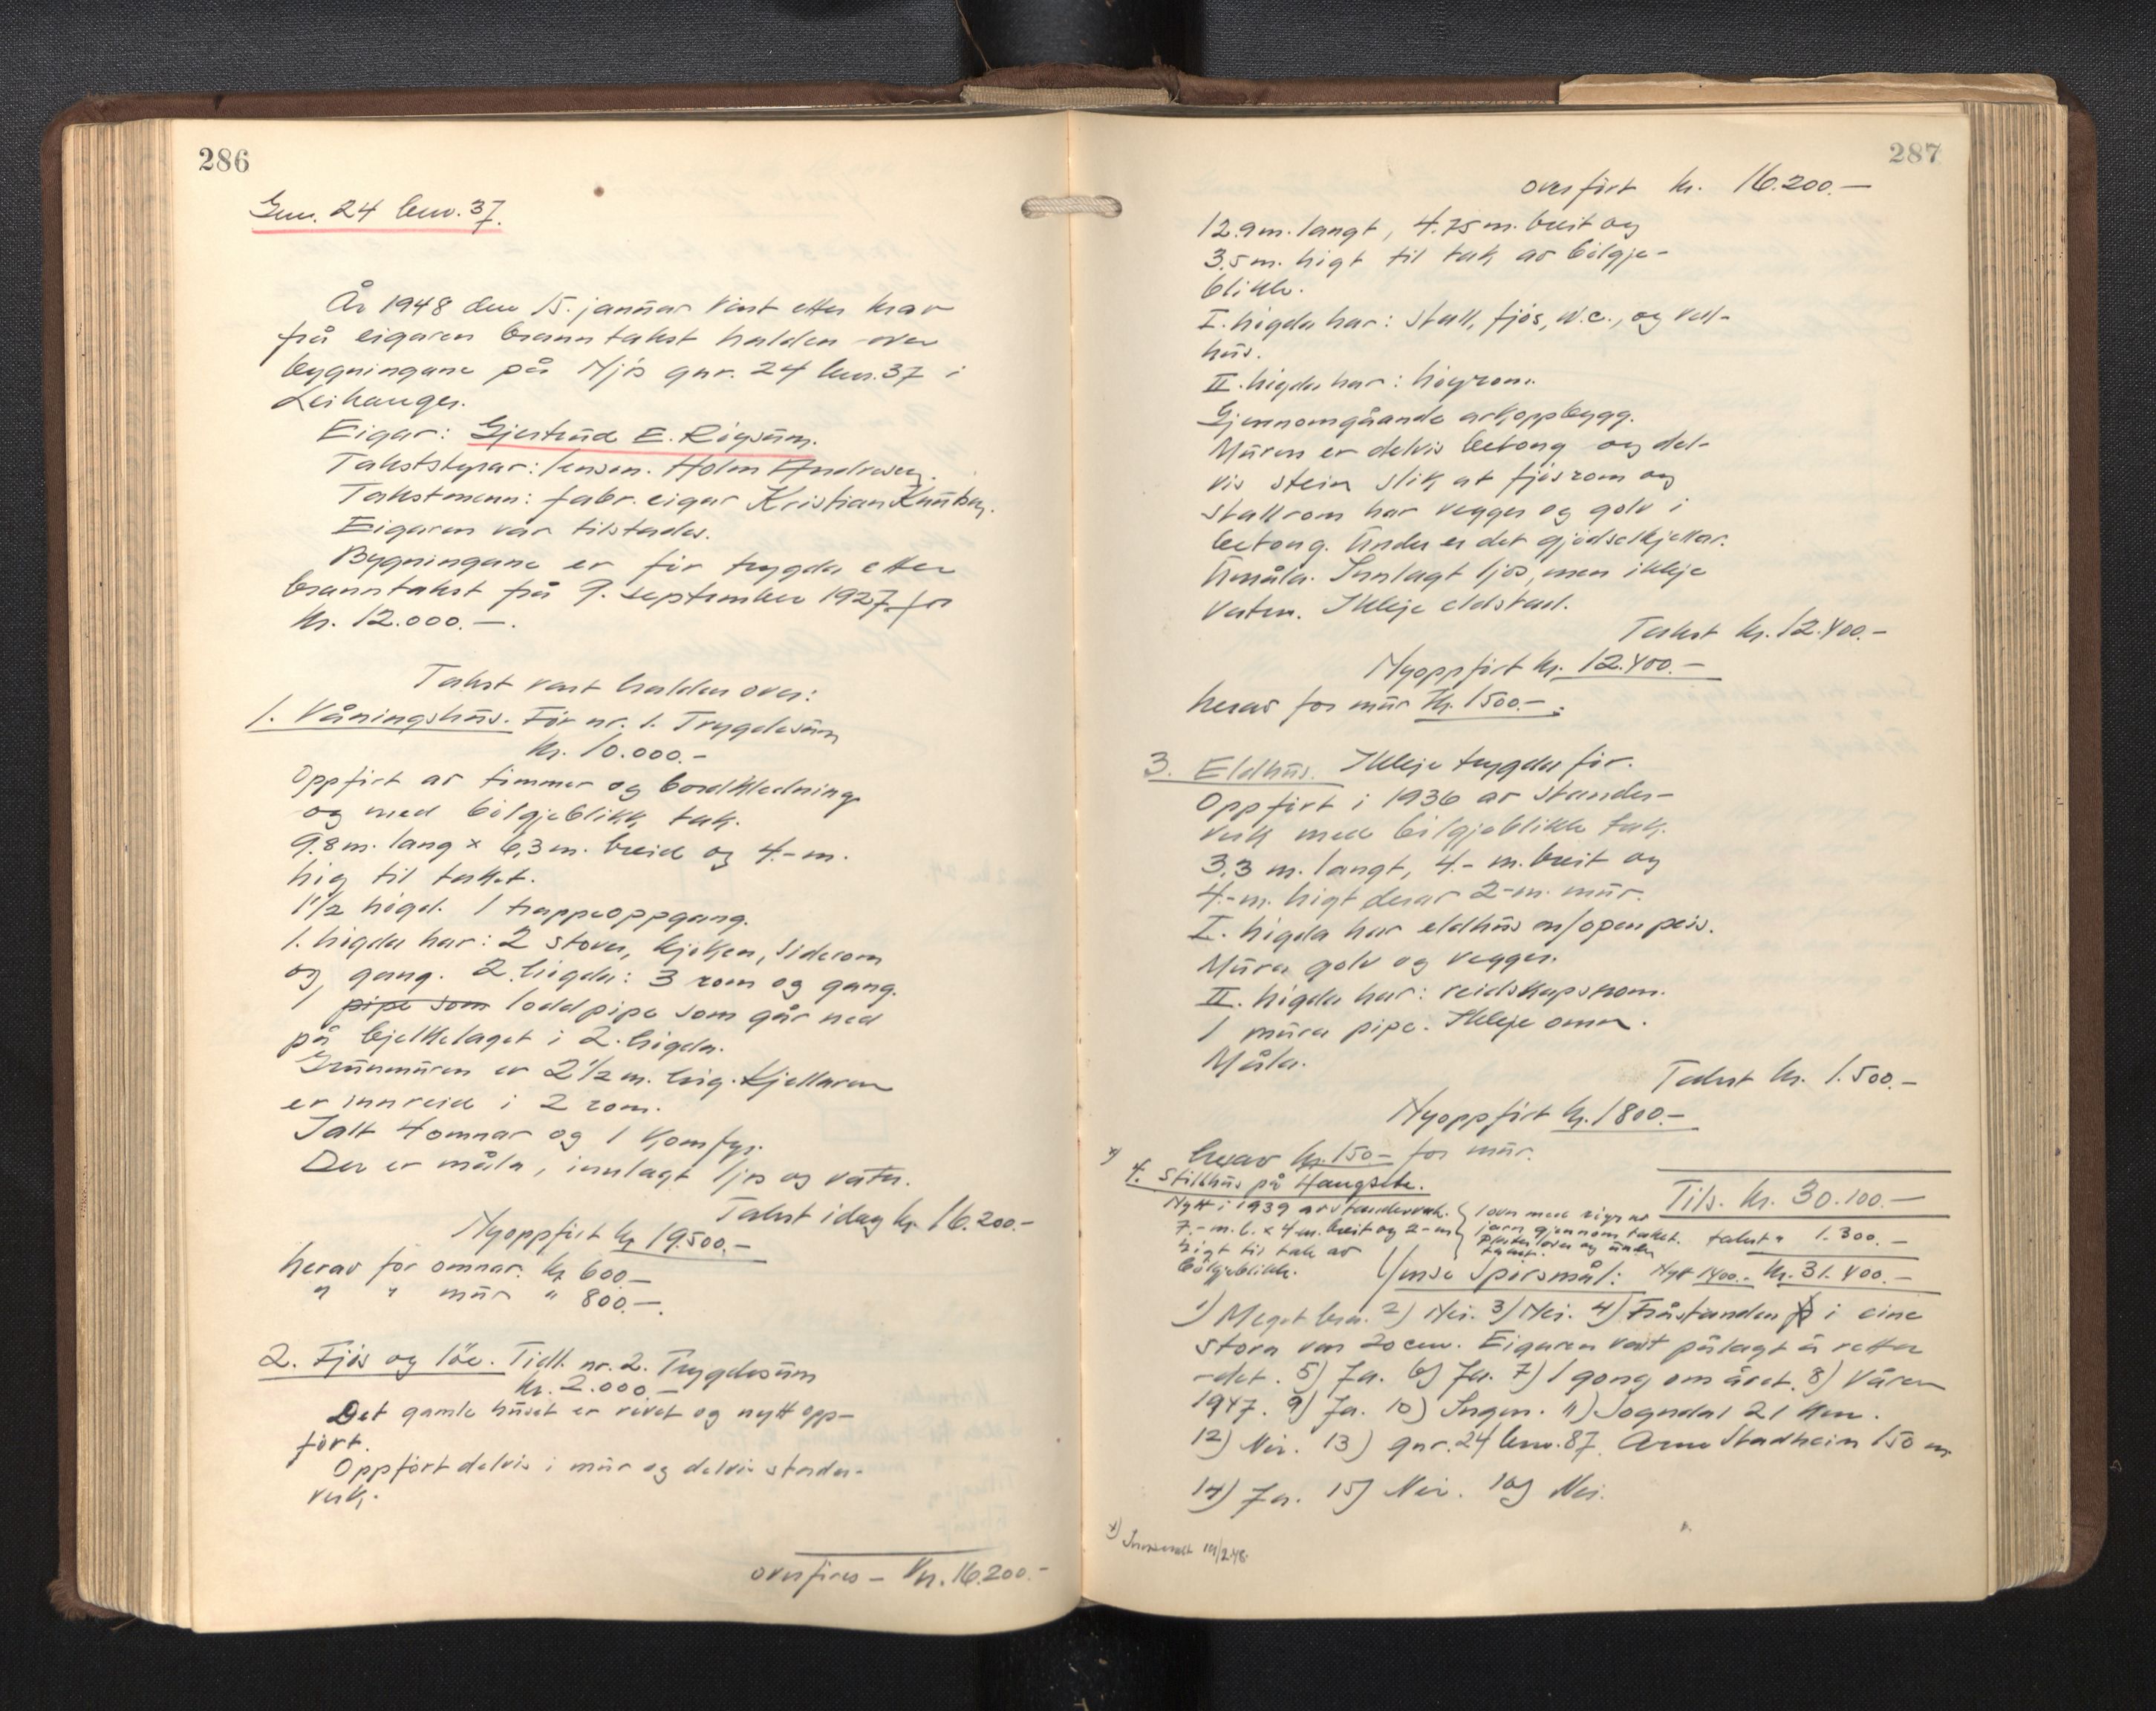 286
Gnr. 24 bnr. 37.
År 1948 den 15. januar vart etter krav
frå eigaren branntakst halden over
bygningane på Njøs gnr. 24 bnr. 37 i
Leikanger.
Eigar: Gjertrud E. Rigsum.
Takststyrar: lensm. Holm Andresen.
Takstmenn: fabr. eigar Kristian
Eigaren var tilstades.
Bygningane er før trygda etter
branntakst frå 9. september 1927 for
kr. 12.000.—.
Takst vart halden over:
1. Våningshus. Før nr. 1. Trygdesum
kr. 10.000.-
Oppført av timmer og bordkledning
og med bølgjeblikk tak.
9.8 m. lang x 6,3 m. breid og 4.- m.
høg til taket.
1 1/2 høgd. 1 trappeoppgang.
1. høgda har: 2 stover, kjøken, siderom
og gang. 2. høgda: 3 rom og gang.
1 pipe som loddpipe som går ned
på bjelkelaget i 2. høgda.
Grunmuren er 2 1/2 m. høg. Kjellaren
er innreid i 2 rom.
Ialt 4 omnar og 1 komfyr.
Der er måla, innlagt ljos og vatn.
Takst idag kr. 16.200.-
Nyoppført kr. 19.500.—
herav for omnar kr. 600.—
" " mur " 800.—.
2. Fjøs og løe. Tidl. nr. 2. Trygdesum
kr. 2.000.—
Det gamle huset er rivet og nytt opp-
ført.
Oppført delvis i mur og delvis stender-
verk.
overføres — kr. 16.200.-
287
overført kr. 16.200.—
12.9 m. langt, 4.75 m. breit og
3.5 m. høgt til tak av bølgje-
blikk.
I. høgda har: stall, fjøs, W.C., og ved-
hus.
II. høgda har: høyrom.
Gjennomgåande arkoppbygg.
Muren er delvis betong og del-
vis stein slik at fjøsrom og
stallrom har vegger og golv i
betong. Under er det gjødselkjellar.
Umåla. Innlagt ljos, men ikkje
vatn. Ikkje eldstad.
Takst kr. 12.400.-
Nyoppført kr. 12.400.-
herav for mur kr. 1500.-.
3. Eldhus. Ikkje trygda før.
Oppført i 1936 av stender-
verk med bølgjeblikk tak.
3,3 m. langt, 4.- m. breit og
4.- m. høgt derav 2-m. mur.
I. høgda har eldhus m/open peis.
Mura golv og vegger.
II. høgda har: reidskapsrom.
1 mura pipe. Ikkje omn.
Måla.
Takst kr. 1.500.-
Nyoppført kr. 1800.-
herav kr. 150.- for mur.
x) 4. Stillhus på Haugsete.
Tils. kr. 30.100.—
Nytt i 1939 av stenderverk.
7.- m. l. x 4 m. breit og 2-m
høgt til tak av
bølgjeblikk.
jarn gjennom taket.
Plater over og under
taket.
takst " 1.300.—
Nytt 1400.- kr. 31.400.—
Ymse Spørsmål:
1) Meget bra. 2) Nei. 3) Nei. 4) Fråstanden i eine
stova var 20 cm. Eigaren vart pålagt å retta
det. 5) Ja. 6) Ja. 7) 1 gong om året. 8) Våren
1947. 9) Ja. 10) Ingen. 11) Sogndal 21 km.
12) Nei. 13) gnr. 24 bnr. 87. Arne Stadheim 150 m
14) Ja. 15) Nei. 16) Nei.